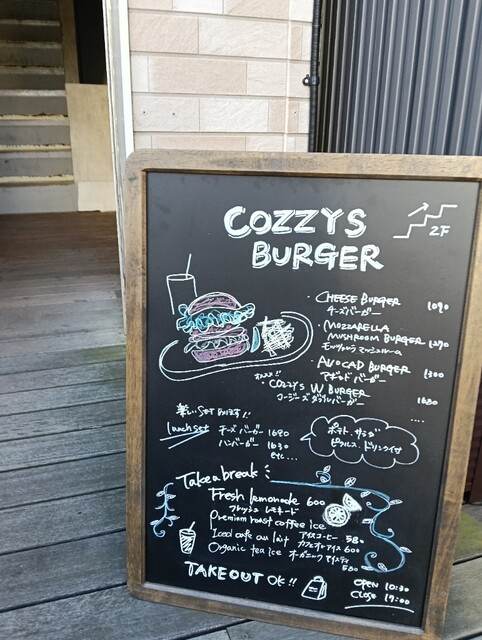 COZZYS
BURGER
2F
・CHEESE BURGER 1090
チーズバーガー
・MOZZARELLA
MUSHROOM BURGER 1290
モッツァレラ マッシュルーム
・AVOCAD BURGER 1300
アボカド バーガー
オススメ!!
COZZYS W BURGER
コージーズ ダブルバーガー 1680
....
SET あります!!
lunch set チーズバーガー 1690
ハンバーガー 1630
etc...
ポテト、サラダ
ピクルス、ドリンク付
Take a break
Fresh lemonade 600
フレッシュ レモネード
Premium roast coffee ice
アイスコーヒー 580
Iced cafe au lait
カフェオレアイス 600
Organic tea ice オーガニック アイスティ
580
TAKE OUT OK!!
OPEN 10:30
CLOSE 17:00